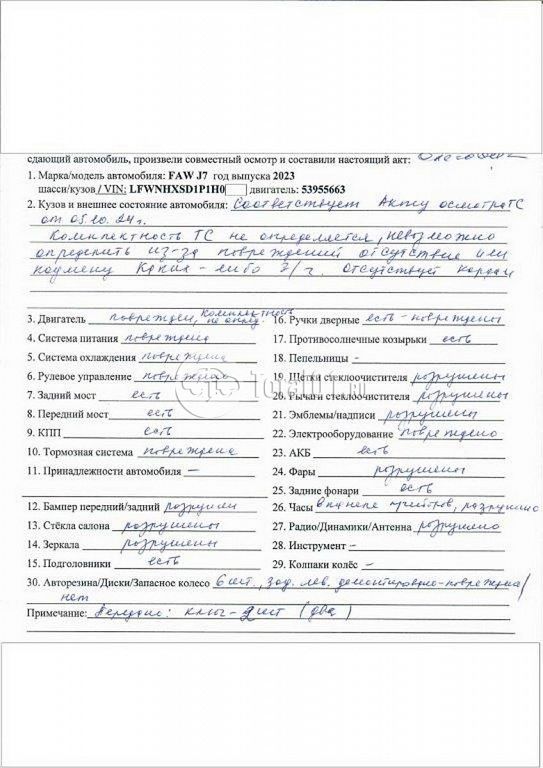 сдающий автомобиль, произвели совместный осмотр и составили настоящий акт:
1. Марка/модель автомобиля: FAW J7 год выпуска 2023
шасси/кузов / VIN: LFWNHXSD1P1H0 двигатель: 53955663
2. Кузов и внешнее состояние автомобиля: Соответствует Акту осмотра ТС
от 05.10.24г.
Комплектность ТС не определяется, невозможно
определить из-за повреждений отсутствие или
подмену каких-либо з/ч. Отсутствует кардан
3. Двигатель поврежден, комплектность не опред. 16. Ручки дверные есть - повреждены
4. Система питания повреждена 17. Противосолнечные козырьки есть
5. Система охлаждения повреждена 18. Пепельницы -
6. Рулевое управление повреждено 19. Щётки стеклоочистителя разрушены
7. Задний мост есть 20. Рычаги стеклоочистителя разрушены
8. Передний мост есть 21. Эмблемы/надписи разрушены
9. КПП есть 22. Электрооборудование повреждено
10. Тормозная система повреждена 23. АКБ есть
11. Принадлежности автомобиля - 24. Фары разрушены
25. Задние фонари есть
12. Бампер передний/задний разрушен 26. Часы в панели приборов, разрушено
13. Стёкла салона разрушены 27. Радио/Динамики/Антенна разрушено
14. Зеркала разрушены 28. Инструмент -
15. Подголовники есть 29. Колпаки колёс -
30. Авторезина/Диски/Запасное колесо 6 шт., зад. лев. демонтировано-повреждена/
нет
Примечание: Передано: ключ - 2шт (два)